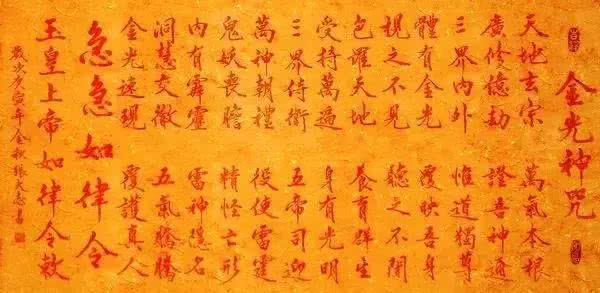 金光神咒
天地玄宗 萬氣本根
廣修億劫 證吾神通
三界內外 惟道獨尊
體有金光 覆映吾身
視之不見 聽之不聞
包羅天地 養育群生
受持萬遍 身有光明
三界侍衛 五帝司迎
萬神朝禮 役使雷霆
鬼妖喪膽 精怪亡形
內有霹靂 雷神隱名
洞慧交徹 五氣騰騰
金光速現 覆護真人
急急如律令
玉皇上帝如律令敕
歲次庚寅年金秋